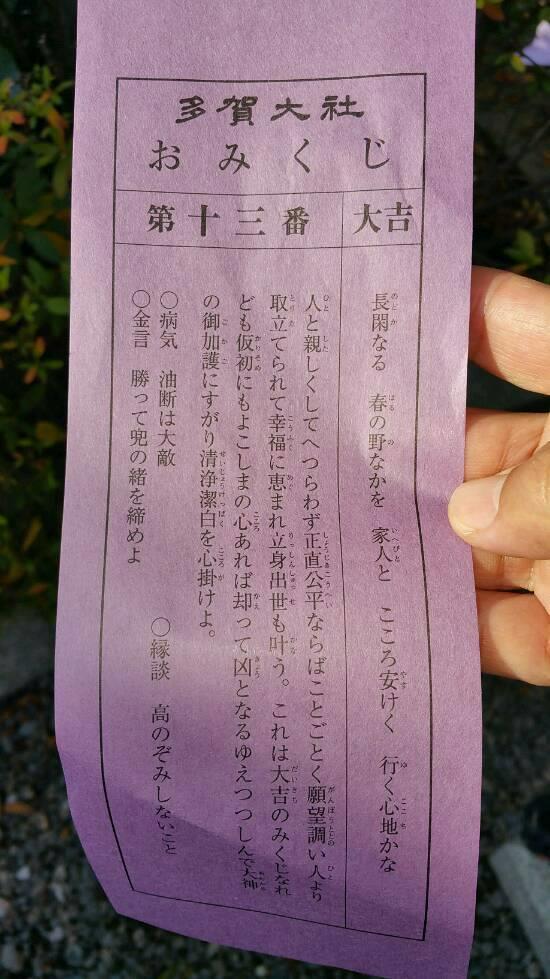 多賀大社
おみくじ
大吉
第十三番
長閑なる　春の野なかを　家人と　こころ安けく　行く心地かな
人と親しくしてへつらわず正直公平ならばことごとく願望調い人より
取立てられて幸福に恵まれ立身出世も叶う。これは大吉のみくじなれ
ども仮初にもよこしまの心あれば却って凶となるゆえつつしんで大神
の御加護にすがり清浄潔白を心掛けよ。
〇病気　油断は大敵　〇縁談　高のぞみしないこと
〇金言　勝って兜の緒を締めよ